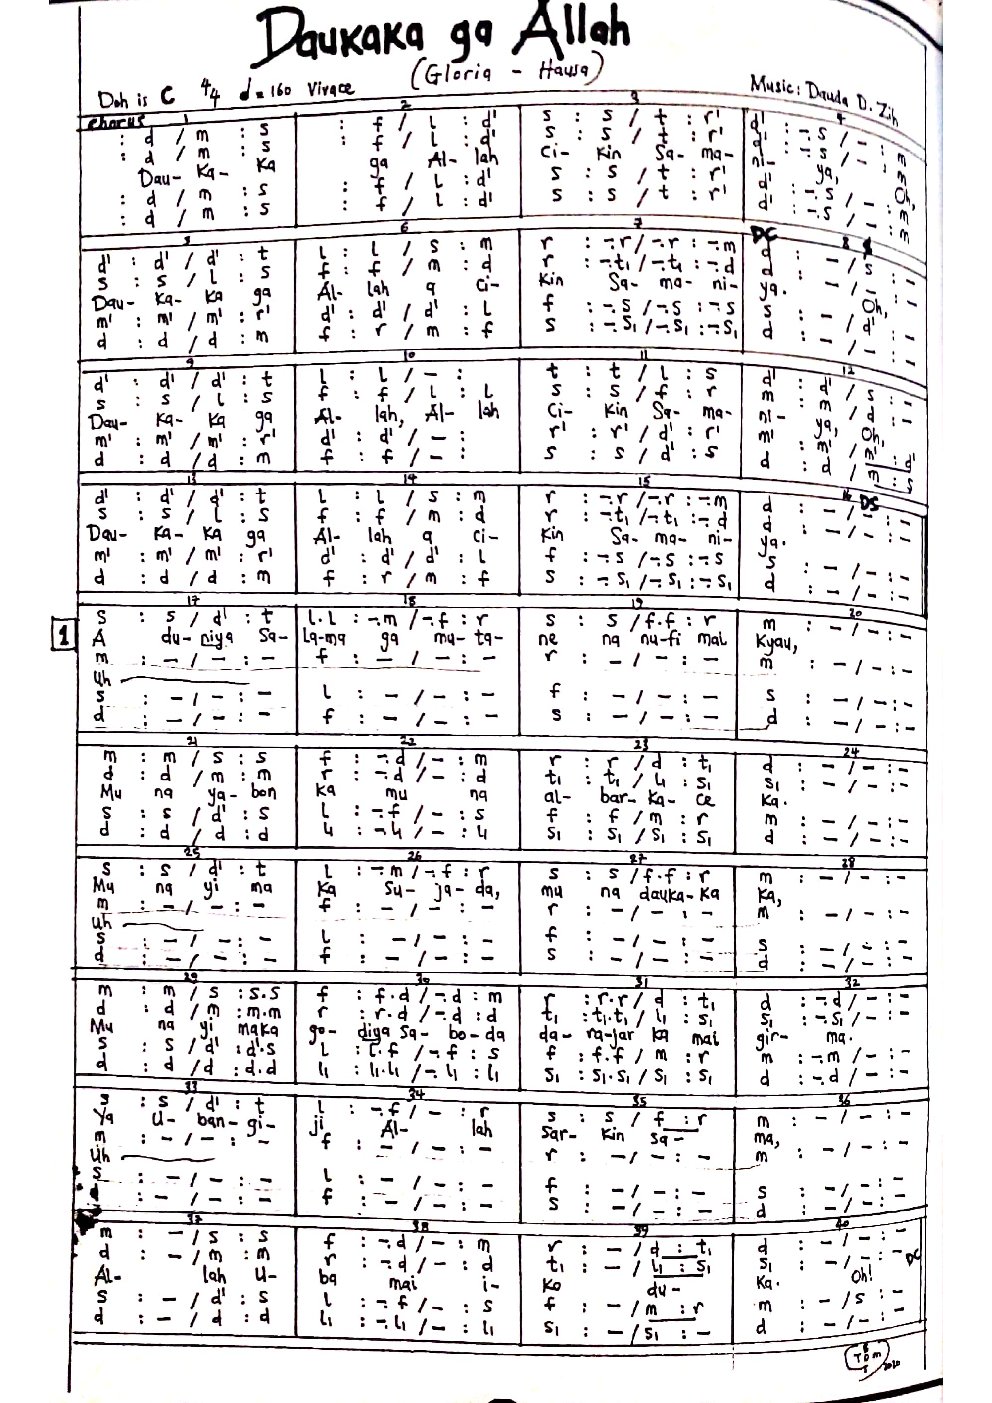 Daukaka ga Allah
(Gloria - Hausa)
Doh is C 4/4 d = 160 Vivace
Music: Dauda D. Zih
Chorus
1 2 3 4
: d / m : s | : f / l : d' | s : s / t : r' | d' : -.s / - : m
: d / m : s | : f / l : d' | s : s / t : r' | d' : -.s / - : m
Dau- Ka- Ka ga Al- lah Ci- Kin Sa- ma- ni- ya, Oh,
: d / m : s | : f / l : d' | s : s / t : r' | d' : -.s / - : m
: d / m : s | : f / l : d' | s : s / t : r' | d' : -.s / - : m
5 6 7 DC 8
d' : d' / d' : t | l : l / s : m | r : -.r / -.r : -.m | d : - / s : -
s : s / l : s | f : f / m : d | r : -.t₁ / -.t₁ : -.d | d : - / - : -
Dau- Ka- Ka ga Al- lah a Ci- Kin Sa- ma- ni- ya. Oh,
m' : m' / m' : r' | d' : d' / d' : l | f : -.s / -.s : -.s | s : - / d' : -
d : d / d : m | f : r / m : f | s : -.s₁ / -.s₁ : -.s₁ | d : - / - : -
9 10 11 12
d' : d' / d' : t | l : l / - : | t : t / l : s | d' : d' / s : -
s : s / l : s | f : f / l : l | s : s / f : r | m : m / d : -
Dau- Ka- Ka ga Al- lah, Al- lah Ci- Kin Sa- ma- ni- ya, Oh,
m' : m' / m' : r' | d' : d' / - : | r' : r' / d' : r' | m' : m' / m' : d'
d : d / d : m | f : f / - : | s : s / d' : s | d : d / m : s
13 14 15 16 DS
d' : d' / d' : t | l : l / s : m | r : -.r / -.r : -.m | d : - / - : -
s : s / l : s | f : f / m : d | r : -.t₁ / -.t₁ : -.d | d : - / - : -
Dau- Ka- Ka ga Al- lah a Ci- Kin Sa- ma- ni- ya.
m' : m' / m' : r' | d' : d' / d' : l | f : -.s / -.s : -.s | s : - / - : -
d : d / d : m | f : r / m : f | s : -.s₁ / -.s₁ : -.s₁ | d : - / - : -
17 18 19 20
1
s : s / d' : t | l.l : -.m / -.f : r | s : s / f.f : r | m : - / - : -
A du- niya Sa- la-ma ga mu- ta- ne na nu-fi mai Kyau,
m : - / - : - | f : - / - : - | r : - / - : - | m : - / - : -
Uh
s : - / - : - | l : - / - : - | f : - / - : - | s : - / - : -
d : - / - : - | f : - / - : - | s : - / - : - | d : - / - : -
21 22 23 24
m : m / s : s | f : -.d / - : m | r : r / d : t₁ | d : - / - : -
d : d / m : m | r : -.d / - : d | t₁ : t₁ / l₁ : s₁ | s₁ : - / - : -
Mu na ya- bon Ka mu na al- bar- Ka- ce Ka.
s : s / d' : s | l : -.f / - : s | f : f / m : r | m : - / - : -
d : d / d : d | l₁ : -.l₁ / - : l₁ | s₁ : s₁ / s₁ : s₁ | d : - / - : -
25 26 27 28
s : s / d' : t | l : -.m / -.f : r | s : s / f.f : r | m : - / - : -
Mu na yi ma Ka Su- ja- da, mu na dauka- Ka Ka,
m : - / - : - | f : - / - : - | r : - / - : - | m : - / - : -
Uh
s : - / - : - | l : - / - : - | f : - / - : - | s : - / - : -
d : - / - : - | f : - / - : - | s : - / - : - | d : - / - : -
29 30 31 32
m : m / s : s.s | f : f.d / -.d : m | r : r.r / d : t₁ | d : -.d / - : -
d : d / m : m.m | r : r.d / -.d : d | t₁ : t₁.t₁ / l₁ : s₁ | s₁ : -.s₁ / - : -
Mu na yi maka go- diya Sa- bo- da da- ra-jar Ka mai gir- ma.
s : s / d' : d'.s | l : l.f / -.f : s | f : f.f / m : r | m : -.m / - : -
d : d / d : d.d | l₁ : l₁.l₁ / -.l₁ : l₁ | s₁ : s₁.s₁ / s₁ : s₁ | d : -.d / - : -
33 34 35 36
s : s / d' : t | l : -.f / - : r | s : s / f : r | m : - / - : -
Ya U- ban- gi- ji Al- lah Sar- Kin Sa- ma,
m : - / - : - | f : - / - : - | r : - / - : - | m : - / - : -
Uh
s : - / - : - | l : - / - : - | f : - / - : - | s : - / - : -
d : - / - : - | f : - / - : - | s : - / - : - | d : - / - : -
37 38 39 40
m : - / s : s | f : -.d / - : m | r : - / d : t₁ | d : - / - : -
d : - / m : m | r : -.d / - : d | t₁ : - / l₁ : s₁ | s₁ : - / - : - DC
Al- lah U- ba mai i- Ko du- Ka. Oh!
s : - / d' : s | l : -.f / - : s | f : - / m : r | m : - / s : -
d : - / d : d | l₁ : -.l₁ / - : l₁ | s₁ : - / s₁ : - | d : - / - : -
TDM
2020